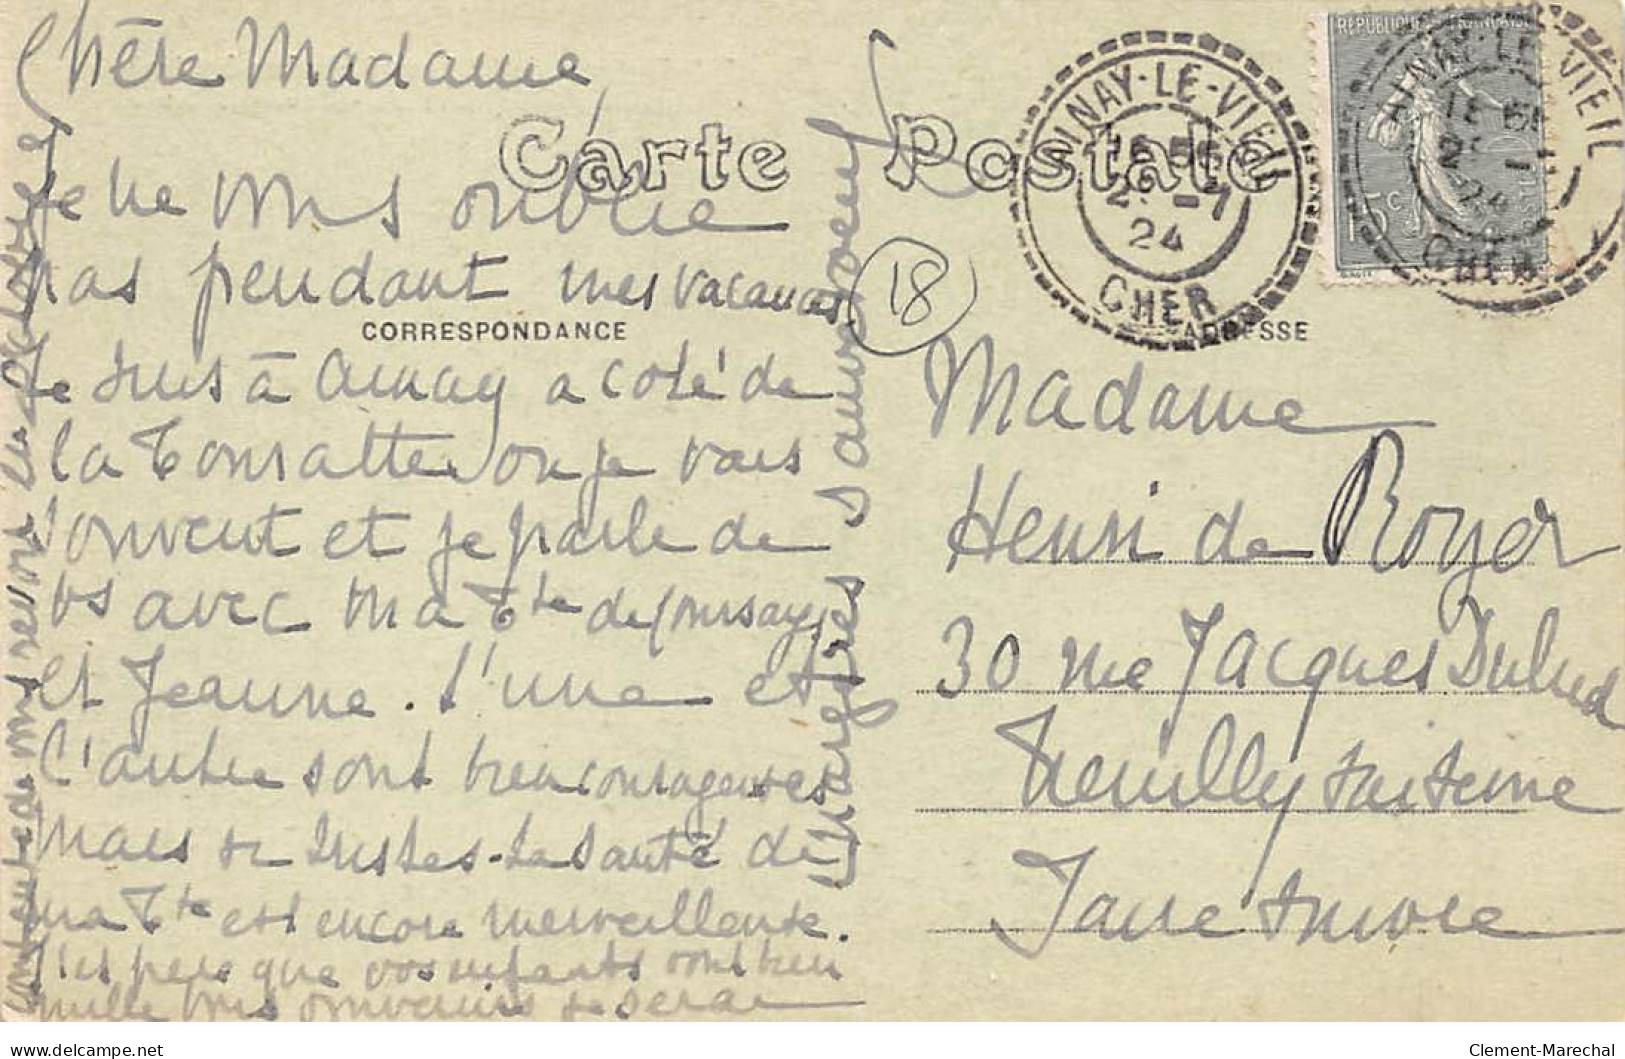 Chère Madame,
Carte Postale
je ne vous oublie
pas pendant mes vacances
CORRESPONDANCE
Je suis à Ainay a coté de
la Touratte ou je vais
souvent et je parle de
vs avec ma Tte de
et Jeanne. L'une et
l'autre sont bien courageuses
mais si tristes. La santé de
ma Tte est encore merveilleuse.
que vos enfants vont bien
mille bons souvenirs je serai
contente de vous revoir
AINAY-LE-VIEIL
-7
24
CHER
REPUBLIQUE FRANÇAISE
15c
AINAY-LE-VIEIL
24
CHER
18
ADRESSE
Madame
Henri de Royer
30 rue Jacques Dulud
Neuilly sur Seine
faire suivre
Clement-Marechal